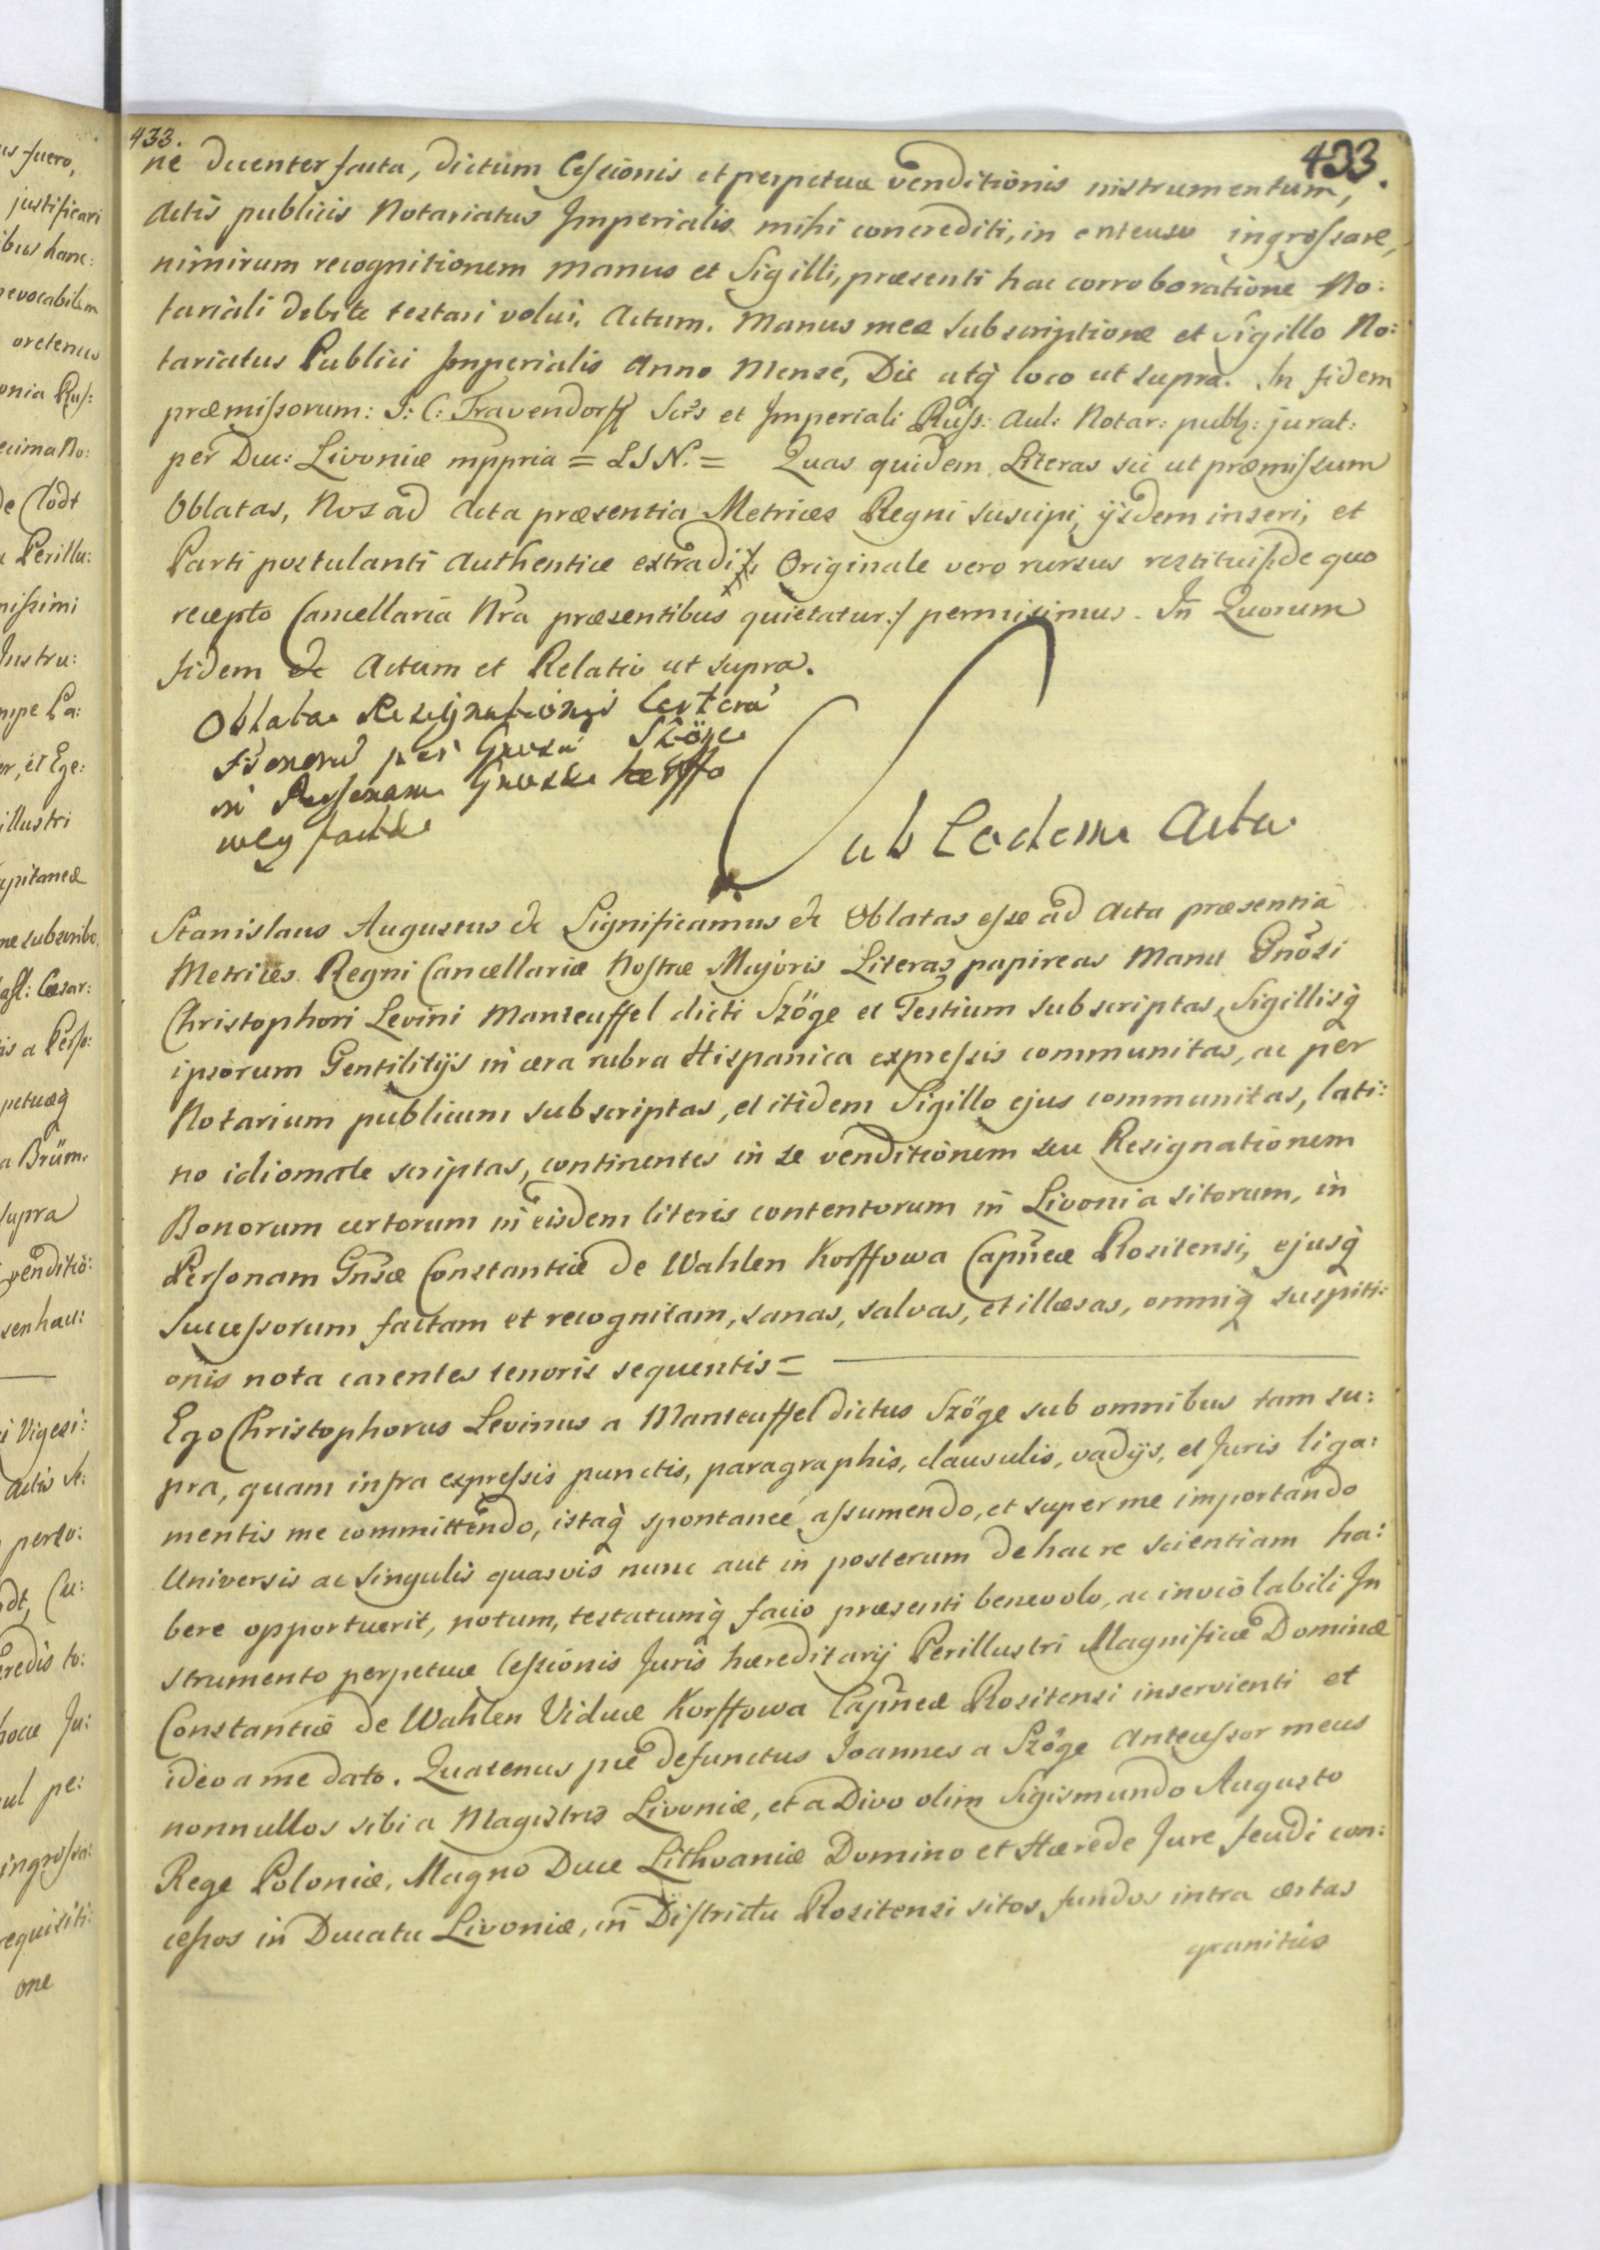 433. 433.
ne decenter facta, dictum Cessionis et perpetuæ venditionis instrumentum,
Actis publicis Notariatus Imperialis mihi concrediti, in extenso ingrossare,
nimirum recognitionem manus et Sigilli, præsenti hac corroboratione No:
tariali debite testari volui. Actum. Manus meæ subscriptione et sigillo No:
tariatus Publici Imperialis Anno Mense, Die atq̃ loco ut supra. In fidem
præmissorum: J: C: Travendorff Scrs et Imperiali Russ: Aul: Notar: publ: jurat:
per Duc: Livoniæ mppria = LSN. = Quas quidem Literas sic ut præmissum
Oblatas, Nos ad Acta præsentia Metrices Regni suscipi, ijsdem inseri, et
Parti postulanti Authentice extradi, Originale vero rursus restitui /: de quo
recepto Cancellaria Nra præsentibus quietatur :/ permisimus. In Quorum
fidem &c Actum et Relatio ut supra.
Oblata Resignationis Certorũ
Bonorũ per Gnosũ Szöge
in Personam Gnosæ Korffo
wey factæ
ab Eadem Acta
Stanislaus Augustus &c Significamus &c Oblatas esse ad Acta præsentia
Metrices Regni Cancellariæ Nostræ Majoris Literas papireas Manu Gnosi
Christophori Levini Manteuffel dicti Szöge et Testium subscriptas, Sigillisq̃
ipsorum Gentilitijs in cera rubra Hispanica expressis communitas, ac per
Notarium publicum subscriptas, et itidem Sigillo ejus communitas, lati:
no idiomate scriptas, continentes in se venditionem seu Resignationem
Bonorum certorum in eisdem literis contentorum in Livonia sitorum, in
Personam Gnsæ Constantiæ de Wahlen Korffowa Capneæ Rositensi, ejusq̃
Successorum factam et recognitam, sanas, salvas, et illæsas, omniq̃ suspiti:
onis nota carentes tenoris sequentis =
Ego Christophorus Levinus a Manteuffel dictus Szöge sub omnibus tam su:
pra, quam infra expressis punctis, paragraphis, clausulis, vadijs, et Juris liga:
mentis me committendo, istaq̃ spontanee assumendo, et super me importando
Universis ac Singulis quasvis nunc aut in posterum de hac re scientiam ha:
bere opportuerit, notum, testatumq̃ facio præsenti benevolo, ac inviolabili In
strumento perpetuæ Cessionis Juris hæreditarij Perillustri Magnificæ Dominæ
Constantiæ de Wahlen Viduæ Korffowa Capneæ Rositensi inservienti et
ideo a me dato. Quatenus pie defunctus Joannes a Szöge Antecessor meus
nonnullos sibi a Magistris Livoniæ, et a Divo olim Sigismundo Augusto
Rege Poloniæ, Magno Duce Lithvaniæ Domino et Hærede Jure feudi con:
cessos in Ducatu Livoniæ, in Districtu Rositensi sitos, fundos intra certas
granitiis